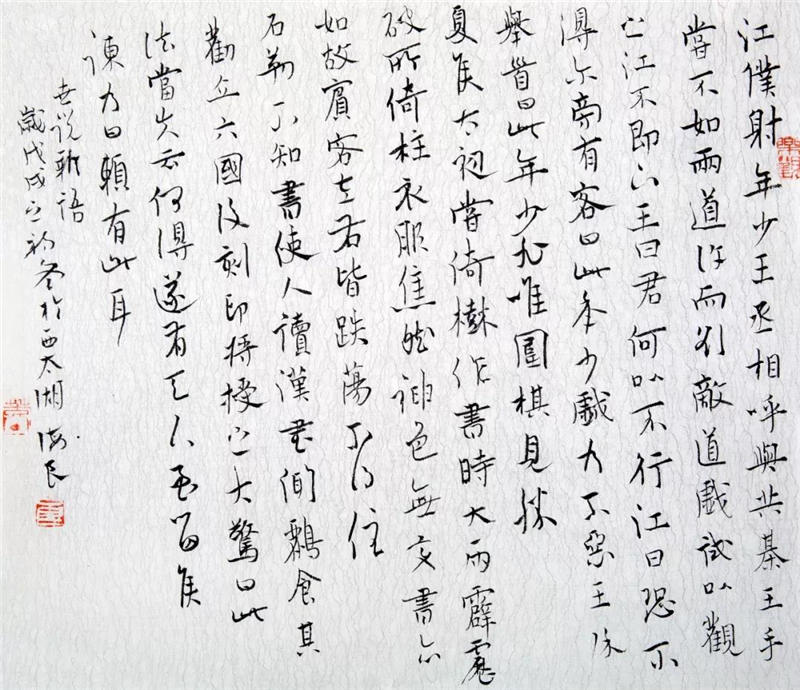 江僕射年少王丞相呼與共棊王手
嘗不如兩道许而欲敵道戲試以觀
之江不即下王曰君何以不行江曰恐不
得尔旁有客曰此年少戲乃不惡王徐
舉首曰此年少非唯圍棋見勝
夏侯太初嘗倚樹作書時大雨霹靂
破所倚柱衣服焦然神色無变書亦
如故賓客左右皆跌蕩不得住
石勒不知書使人讀漢書聞酈食其
勸立六國後刻印将授之大驚曰此
法當失云何得遂有天下至留侯
諫乃曰賴有此耳
世说新语
歲戊戌之初冬於西太湖海民